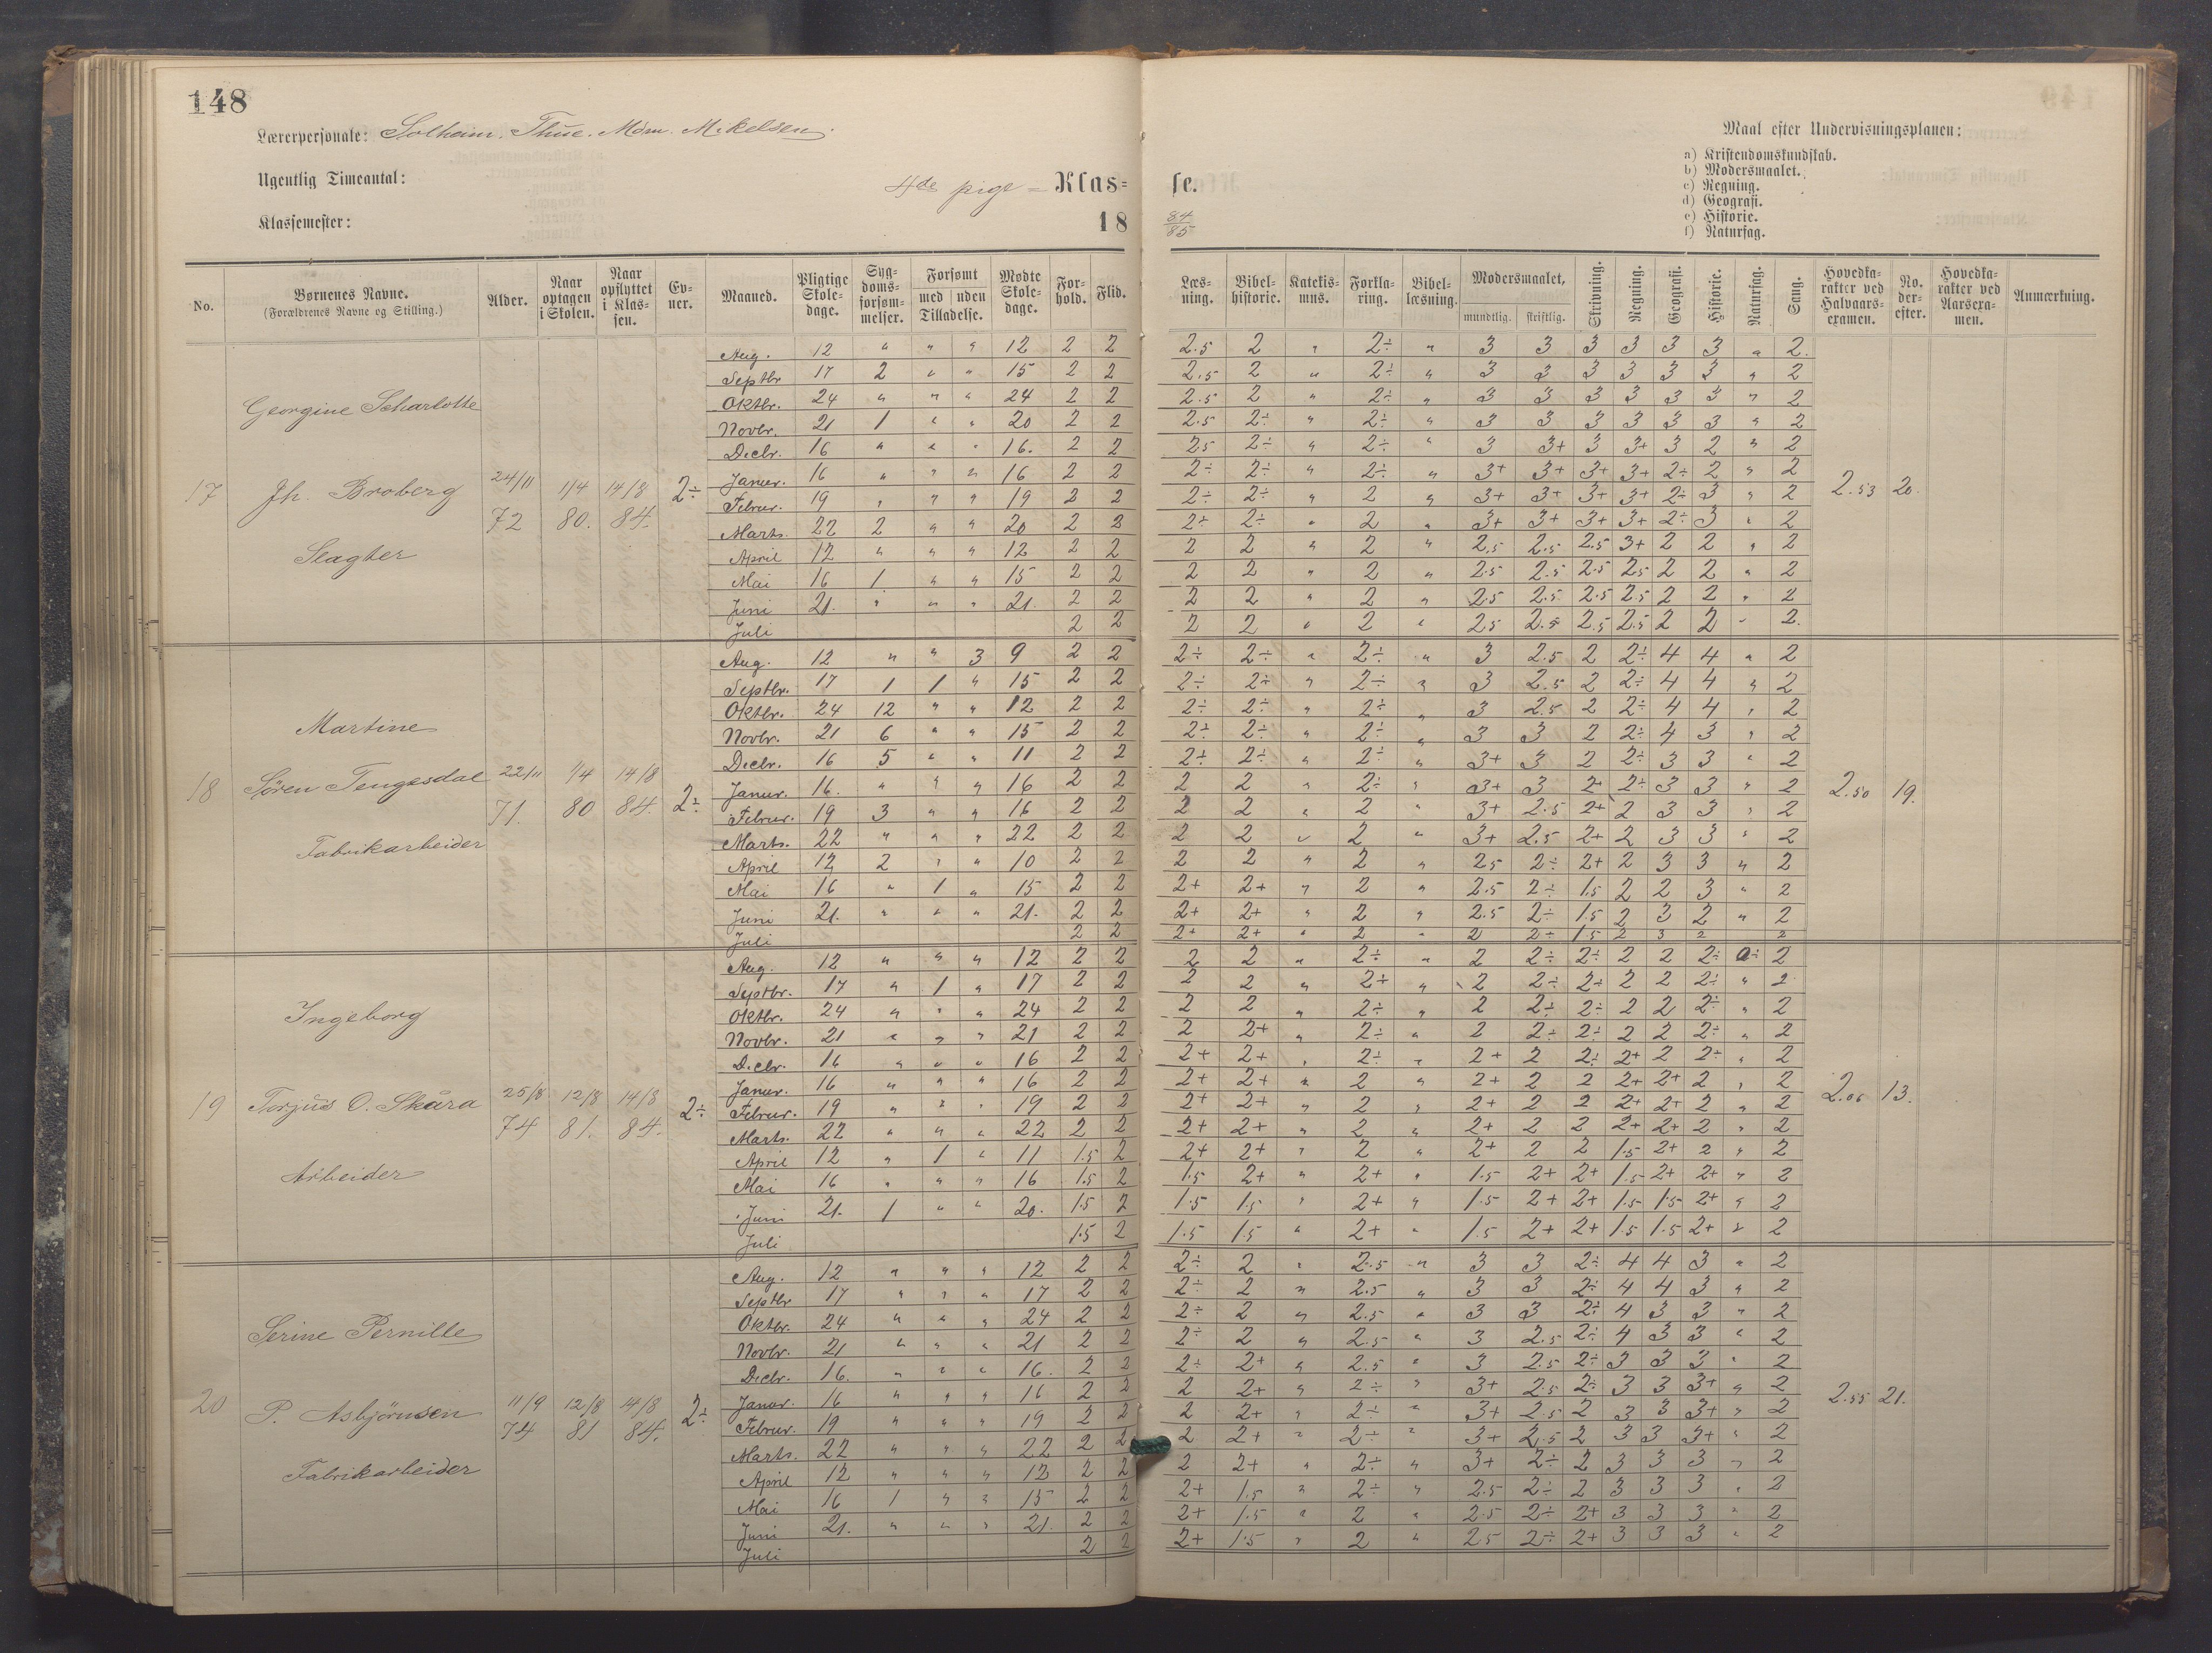 148
Lærerpersonale: Solheim. Thue. Mdm. Mikelsen.
Ugentlig Timeantal:
4de pige = Klas=
Klassemester:
18
se.
84/85
Maal efter Undervisningsplanen:
a) Kristendomskundskab.
b) Modersmaalet.
c) Regning.
d) Geografi.
e) Historie.
f) Naturfag.
No. Børnenes Navne. (Forældrenes Navne og Stilling.) Alder. Naar optagen i Skolen. Naar opflyttet i Klassen. Evner. Maaned. Pligtige Skoledage. Sygdomsforsømmelser. Forsømt med uden Tilladelse. Mødte Skoledage. Forhold. Flid.
Læsning. Bibelhistorie. Katekismus. Forklaring. Bibellæsning. Modersmaalet, mundtlig. skriftlig. Skrivning. Regning. Geografi. Historie. Naturfag. Sang. Hovedkarakter ved Halvaarsexamen. No. derefter. Hovedkarakter ved Aarsexamen. Anmærkning.
17 Georgine Scharlotte
Jh. Broberg
Slagter
24/11 72 1/4 80. 14/8 84. 2÷
2.53 20.
Aug. 12 " " " 12 2 2 2.5 2 " 2÷ " 3 3 3 3 3 3 " 2.
Septbr 17 2 " " 15 2 2 2.5 2 " 2÷ " 3 3 3 3 3 3 " 2
Oktbr. 24 " " " 24 2 2 2.5 2 " 2÷ " 3 3 3 3 3 3 " 2
Novbr. 21 1 " " 20 2 2 2.5 2÷ " 2÷ " 3 3 3 3 3 3 " 2
Decbr. 16 " " " 16. 2 2 2.5 2÷ " 2÷ " 3 3+ 3 3+ 3 2 " 2
Januar. 16 " " " 16 2 2 2÷ 2÷ " 2÷ " 3+ 3+ 3+ 3+ 2÷ 2 " 2
Februar. 19 " " " 19 2 2 2÷ 2÷ " 2 " 3+ 3+ 3+ 3+ 2÷ 3 " 2
Marts. 22 2 " " 20 2 2 2÷ 2÷ " 2 " 3+ 3+ 3+ 3+ 2÷ 3 " 2
April 12 " " " 12 2 2 2 2 " 2 " 2.5 2.5 2.5 3+ 2 2 " 2
Mai 16 1 " " 15 2 2 2 2 " 2 " 2.5 2.5 2.5 2.5 2 2 " 2
Juni 21. " " " 21. 2 2 2 2 " 2 " 2.5 2.5 2.5 2.5 2 2 " 2
Juli 2 2 2 2 " 2 " 2.5 2.5 2.5 2.5 2 2 " 2.
18 Martine
Sören Tengesdal
Fabrikarbeider
22/11 71. 1/4 80 14/8 84. 2÷
2.50 19.
Aug. 12 " " 3 9 2 2 2÷ 2÷ " 2÷ " 3 2.5 2 2÷ 4 4 " 2
Septbr. 17 1 1 " 15 2 2 2÷ 2÷ " 2÷ " 3 2.5 2 2÷ 4 4 " 2
Oktbr. 24 12 " " 12 2 2 2÷ 2÷ " 2÷ " 3 2.5 2 2÷ 4 4 " 2
Novbr. 21 6 " " 15 2 2 2÷ 2÷ " 2÷ " 3 3 2 2÷ 4 3 " 2
Decbr. 16 5 " " 11 2 2 2÷ 2÷ " 2÷ " 3+ 3 2 2÷ 3 3 " 2
Januar. 16. " " " 16 2 2 2 2 " 2÷ " 3+ 3 2+ 2÷ 3 3 " 2
Februar. 19 3 " " 16 2 2 2 2 " 2 " 3+ 2.5 2+ 2 3 3 " 2
Marts. 22 " " " 22 2 2 2 2 " 2 " 3+ 2.5 2+ 2 3 3 " 2
April 12 2 " " 10 2 2 2 2 " 2 " 2.5 2÷ 2+ 2 3 3 " 2
Mai 16 " 1 " 15 2 2 2+ 2+ " 2 " 2.5 2÷ 1.5 2 2 3 " 2
Juni 21. " " " 21. 2 2 2+ 2+ " 2 " 2.5 2÷ 1.5 2 3 2 " 2
Juli 2 2 2+ 2+ " 2 " 2 2÷ 1.5 2 3 2 2
19 Ingeborg
Torjus O. Skåra
Arbeider
25/8 74 12/8 81. 14/8 84. 2÷
2.06 13.
Aug. 12 " " " 12 2 2 2 2 " 2÷ " 2 2÷ 2÷ 2 2 2÷ 2
Septbr. 17 " 1 " 17 2 2 2 2 " 2+ " 2 2÷ 2÷ 2 2 2÷ " 2
Oktbr. 24 " " " 24 2 2 2 2 " 2÷ " 2 2÷ 2÷ 2 2 2÷ " 2
Novbr. 21 " " " 21 2 2 2 2+ " 2÷ " 2 2÷ 2÷ 2 2 2÷ " 2
Decbr. 16 " " " 16 2 2 2+ 2+ " 2÷ " 2+ 2 2÷ 2+ 2 2÷ " 2
Januar. 16 " " " 16 2 2 2+ 2+ " 2 " 2+ 2 2 2+ 2+ 2 " 2
Februar. 19 " " " 19 2 2 2+ 2+ " 2 " 2+ 2 2 2+ 2+ 2 " 2
Marts. 22 " " " 22 2 2 2+ 2+ " 2 " 2+ 2 2 2+ 2+ 2 " 2
April 12 " 1 " 11 1.5 2 2+ 2+ " 2 " 2+ 2 2 1.5 2+ 2 " 2
Mai 16 " " " 16 1.5 2 1.5 2+ " 2+ " 1.5 2+ 2+ 1.5 2+ 2+ " 2
Juni 21. 1 " " 20. 1.5 2 1.5 1.5 " 2+ " 1.5 2+ 2+ 1.5 1.5 2+ " 2
Juli 1.5 2 1.5 1.5 " 2+ " 1.5 2+ 2+ 1.5 1.5 2+ " 2
20 Serine Pernille
P. Asbjörnsen
Fabrikarbeider
11/9 74 12/8 81 14/8 84. 2÷
2.55 21.
Aug. 12 " " " 12 2 2 2÷ 2 " 2.5 " 3 3 2÷ 4 4 3 " 2
Septbr 17 " " " 17 2 2 2÷ 2 " 2.5 " 3 3 2÷ 4 4 3 " 2
Oktbr. 24 " " " 24 2 2 2÷ 2 " 2.5 " 3 3 2÷ 4 3 3 " 2
Novbr. 21 " " " 21 2 2 2÷ 2 " 2.5 " 3 2.5 2÷ 4 3 3 " 2
Decbr. 16. " " " 16. 2 2 2÷ 2+ " 2.5 " 3 2.5 2÷ 3 3 3 " 2
Januar. 16 " " " 16 2 2 2 2+ " 2÷ " 3+ 2.5 2÷ 3 3 3+ " 2
Februar. 19 " " " 19 2 2 2 2+ " 2÷ " 3+ 2.5 2 3 3 3+ " 2
Marts. 22 " " " 22 2 2 2 2+ " 2÷ " 3+ 2.5 2 3 3 3+ " 2
April 12 " " " 12 2 2 2 2+ " 2÷ " 3+ 2÷ 2 3 3 3 " 2
Mai 16 1 " " 15 2 2 2+ 1.5 " 2÷ " 2.5 2÷ 2 3 3 3 " 2
Juni 21. " " " 21. 2 2 2+ 1.5 " 2 " 2.5 2÷ 2+ 3 3 3 " 2
Juli 2 2 2+ 1.5 " 2 " 2.5 2÷ 2+ 3 3 3 " 2